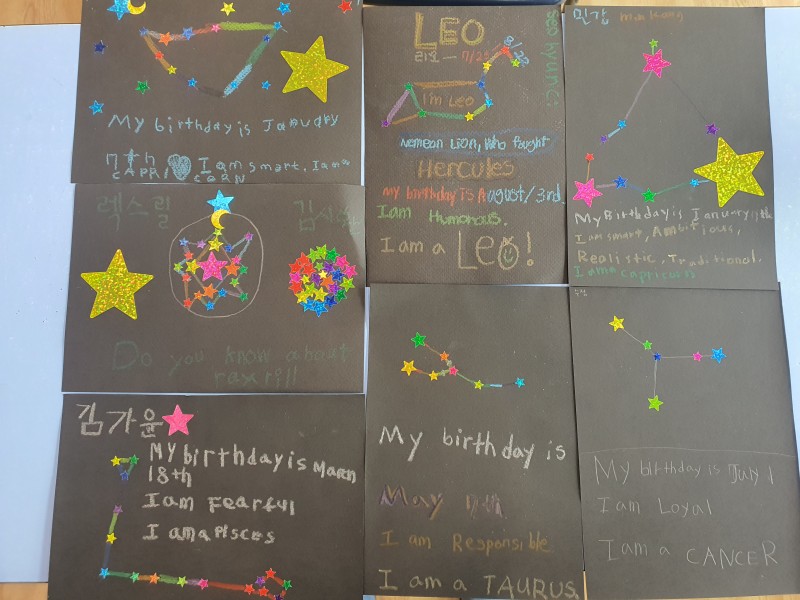 My birthday is January
7th I am smart, I am a
CAPRICORN
LEO
리오 - 7/23 8/22
seo hyung:
I'm Leo
Nemean Lion, Who fought
Hercules
my birthday is August/3rd.
I am Humorous.
I am a Leo!
민강
My Birthday is January
I am smart, Ambitious,
Realistic, Traditional.
I am a capricorn
렉스릴
Do you know about
rexrill
김가윤
My birthday is March
18th
I am Fearful
I am a Pisces
My birthday is
May
I am Responsible
I am a TAURUS.
My birthday is
I am Loyal
I am a CANCER